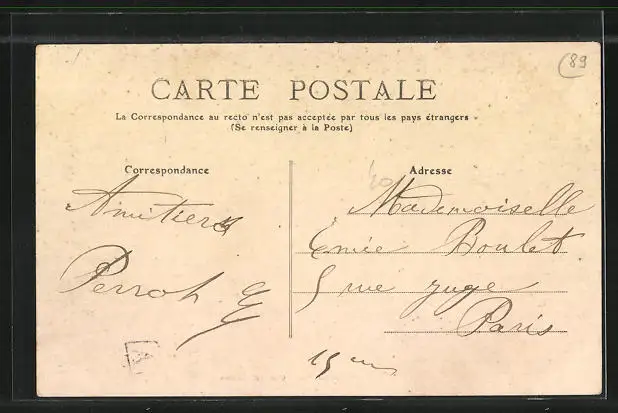 89
CARTE POSTALE
La Correspondance au recto n'est pas acceptée par tous les pays étrangers
(Se renseigner à la Poste)
Correspondance
Adresse
Amitiers
Perrot
Mademoiselle
Boulet
5 rue juge
Paris
15